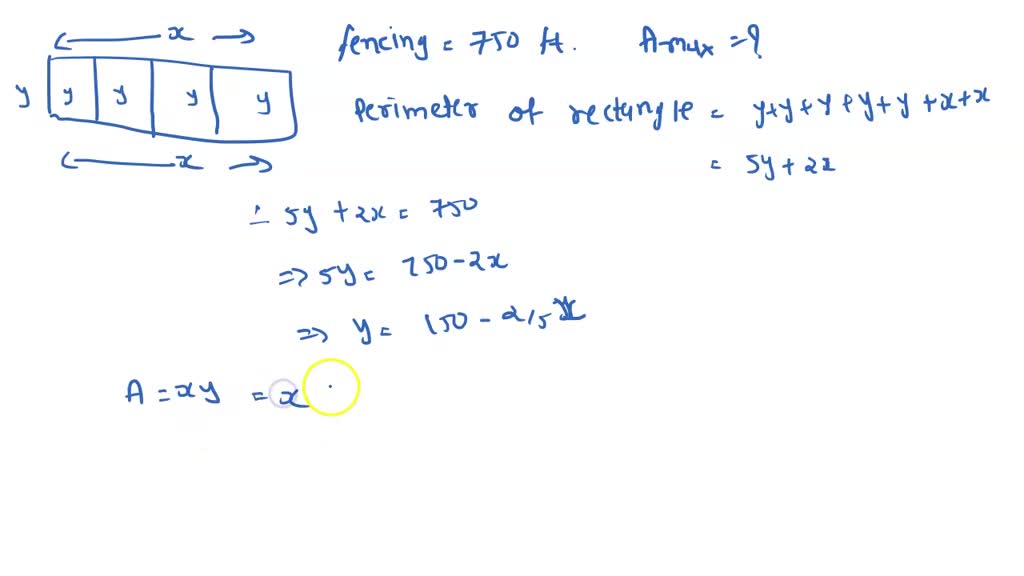 x
fencing = 750 ft. Amax = ?
y y y y y
Perimeter of rectangle = y+y+y+y+y+x+x
x
= 5y + 2x
∴ 5y + 2x = 750
=> 5y = 750 - 2x
=> y = 150 - 2/5 x
A = xy = x